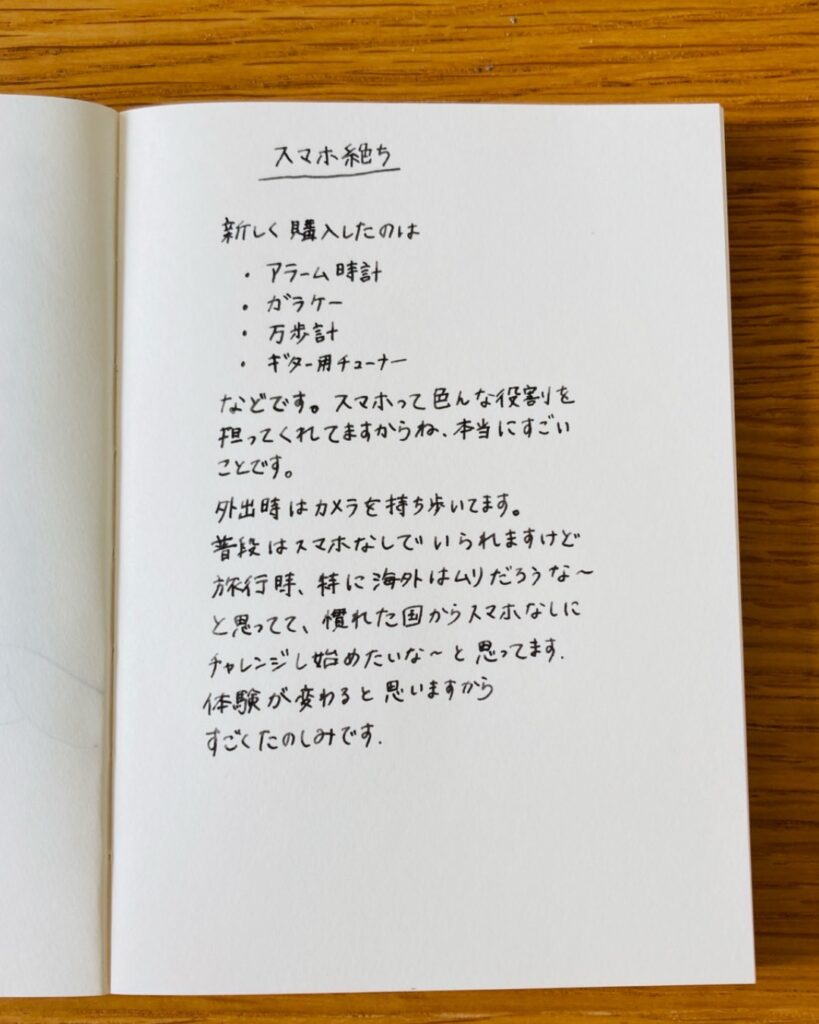 スマホ絶ち
新しく購入したのは
・アラーム時計
・ガラケー
・万歩計
・ギター用チューナー
などです。スマホって色んな役割を
担ってくれてますからね、本当にすごい
ことです。
外出時はカメラを持ち歩いてます。
普段はスマホなしでいられますけど
旅行時、特に海外はムリだろうな〜
と思ってて、慣れた国からスマホなしに
チャレンジし始めたいな〜と思ってます.
体験が変わると思いますから
すごくたのしみです.